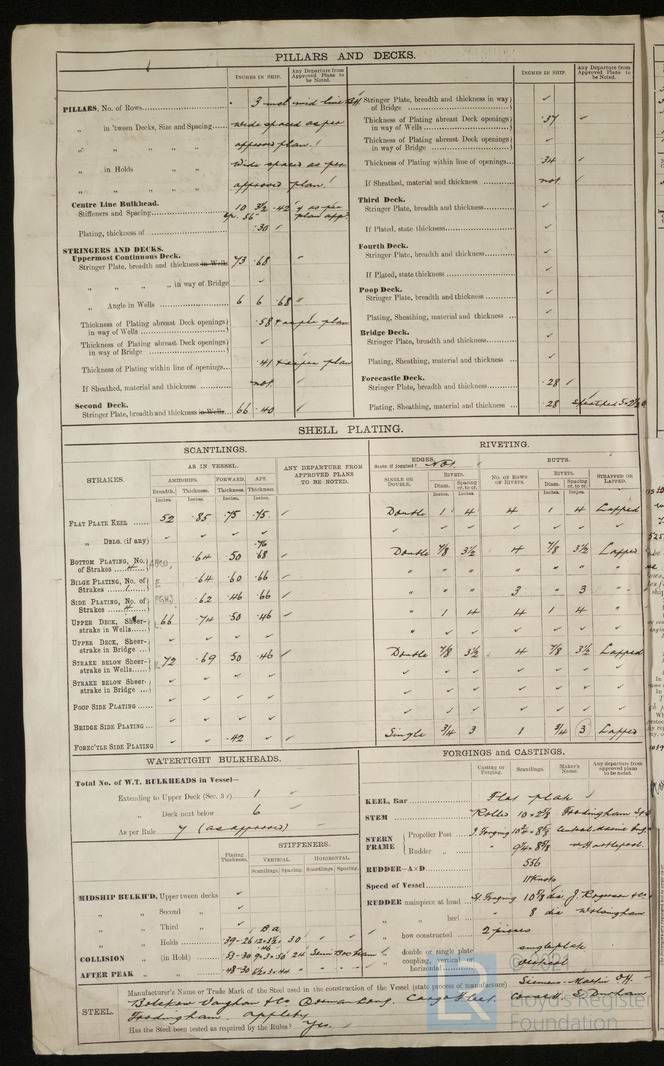 PILLARS AND DECKS.
INCHES IN SHIP. Any Departure from Approved Plans to be Noted.
PILLARS, No. of Rows
„ in 'tween Decks, Size and Spacing wide spaced as per
„ „ „ „ approved plan.
„ in Holds „ „ Wide spaced as per
„ „ „ „ approved plan.
Centre Line Bulkhead.
Stiffeners and Spacing 10 3½ .42
Plating, thickness of .30
STRINGERS AND DECKS.
Uppermost Continuous Deck.
Stringer Plate, breadth and thickness in Wells 73 .68 "
„ „ „ „ in way of Bridge ✓
„ Angle in Wells 6 6 .68 "
Thickness of Plating abreast Deck openings in way of Wells .58 + as per plan
Thickness of Plating abreast Deck openings in way of Bridge ✓
Thickness of Plating within line of openings .41 + as per plan
If Sheathed, material and thickness not ✓
Second Deck.
Stringer Plate, breadth and thickness in Wells 66 .40 ✓
INCHES IN SHIP. Any Departure from Approved Plans to be Noted.
Stringer Plate, breadth and thickness in way of Bridge ✓
Thickness of Plating abreast Deck openings in way of Wells .37 ✓
Thickness of Plating abreast Deck openings in way of Bridge ✓
Thickness of Plating within line of openings .34 ✓
If Sheathed, material and thickness not ✓
Third Deck.
Stringer Plate, breadth and thickness ✓
If Plated, state thickness ✓
Fourth Deck.
Stringer Plate, breadth and thickness ✓
If Plated, state thickness ✓
Poop Deck.
Stringer Plate, breadth and thickness ✓
Plating, Sheathing, material and thickness ✓
Bridge Deck.
Stringer Plate, breadth and thickness ✓
Plating, Sheathing, material and thickness ✓
Forecastle Deck.
Stringer Plate, breadth and thickness .28 ✓
Plating, Sheathing, material and thickness .28 sheathed
SHELL PLATING.
SCANTLINGS. RIVETING.
STRAKES. AS IN VESSEL. ANY DEPARTURE FROM APPROVED PLANS TO BE NOTED.
AMIDSHIPS. FORWARD. AFT.
Breadth. Thickness. Thickness. Thickness.
Inches. Inches. Inches. Inches.
EDGES. State if joggled? Not. BUTTS.
SINGLE OR DOUBLE. RIVETS. No. of Rows of Rivets. RIVETS. STRAPPED OR LAPPED.
Diam. Spacing cr. to cr. Diam. Spacing cr. to cr.
Inches. Inches. Inches. Inches.
FLAT PLATE KEEL 52 .85 .75 .75 ✓ Double 1 4 4 1 4 Lapped
„ DBLG. (if any) ✓ ✓ ✓ ✓
BOTTOM PLATING, No. of Strakes 4 ABCD .64 .50 .76 .68 ✓ Double 7/8 3½ 4 7/8 3½ Lapped
BILGE PLATING, No. of Strakes 1 E .64 .60 .66 ✓ " " " " " " "
SIDE PLATING, No. of Strakes 4 FGHJ .62 .46 .66 ✓ " " " 3 " 3 "
UPPER DECK, Sheer-strake in Wells L 66 .74 .50 .46 ✓ " 1 4 4 1 4 "
UPPER DECK, Sheer-strake in Bridge ✓ ✓ ✓ ✓
STRAKE BELOW Sheer-strake in Wells K 72 .69 .50 .46 ✓ Double 7/8 3½ 4 7/8 3½ Lapped
STRAKE BELOW Sheer-strake in Bridge ✓ ✓ ✓ ✓
POOP SIDE PLATING ✓ ✓ ✓ ✓
BRIDGE SIDE PLATING ✓ ✓ ✓ ✓
FOREC'TLE SIDE PLATING .42 ✓ Single 3/4 3 1 3/4 3 Lapped
WATERTIGHT BULKHEADS.
Total No. of W.T. BULKHEADS in Vessel—
Extending to Upper Deck 1 ✓
„ Deck next below 6 ✓
As per Rule 7 (as approved)
STIFFENERS.
Plating Thickness. VERTICAL. HORIZONTAL.
Scantlings. Spacing. Scantlings. Spacing.
MIDSHIP BULKH'D, Upper tween decks ✓
„ „ Second „ ✓
„ „ Third „ ✓
„ „ Holds .39-.26 30
COLLISION „ (in Hold) .53-.30 24
AFTER PEAK „ „ .48-.30
FORGINGS and CASTINGS.
Casting or Forging. Scantlings. Maker's Name. Any departure from approved plans to be noted.
KEEL, Bar Flat plate
STEM Rolled 10 × 2½ Frodingham
STERN FRAME { Propeller Post
Rudder „
RUDDER—A×D 556
Speed of Vessel 11 Knots
RUDDER mainpiece at head 10⅝ dia J. Rogerson & Co
„ „ heel 8 dia Wolsingham
„ how constructed 2 pieces
„ double or single plate single plate
„ coupling, vertical or horizontal vertical
STEEL.
Manufacturer's Name or Trade Mark of the Steel used in the construction of the Vessel (state process of manufacture) Siemens-Martin O.H.
Bolckow Vaughan & Co Dorman Long. Cargo Fleet. Consett. S. Durham
Frodingham. Appleby
Has the Steel been tested as required by the Rules? Yes.
Lloyd's Register
Foundation